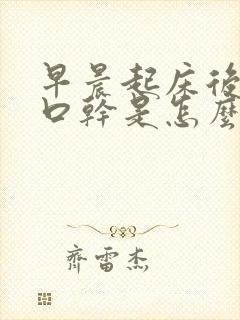 早晨起床後
口幹是怎麼
齊雷杰